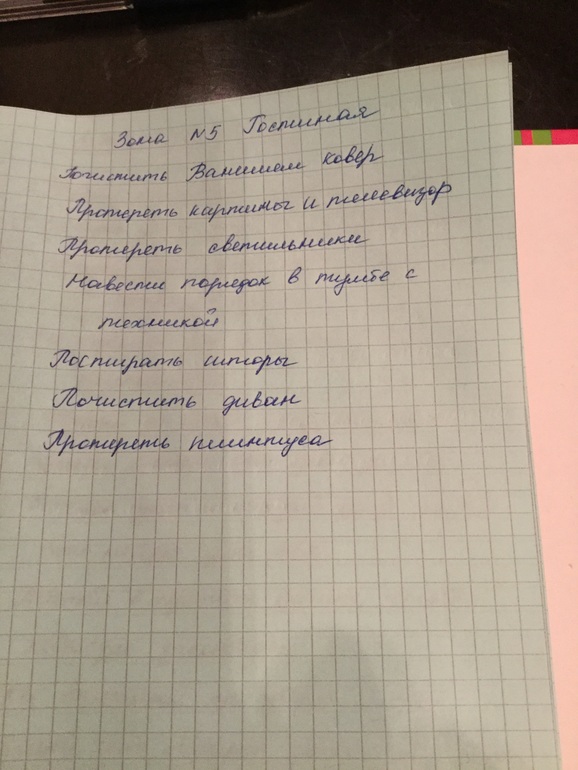 Зона №5 Гостиная
Почистить Ванишем ковер
Протереть картины и телевизор
Протереть светильники
Навести порядок в тумбе с
техникой
Постирать шторы
Почистить диван
Протереть плинтуса